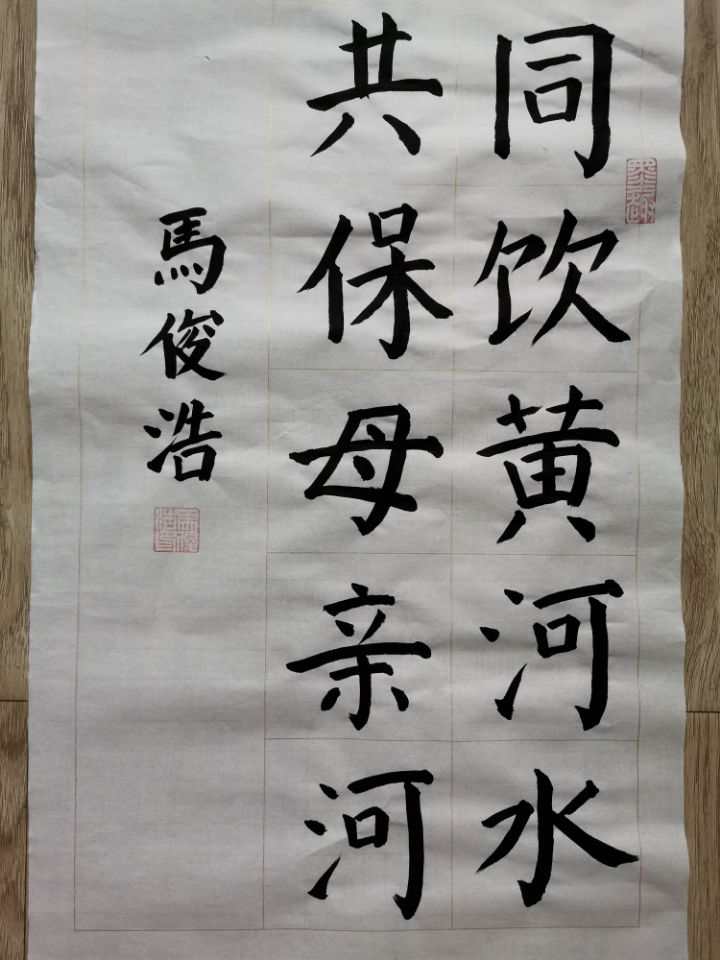 同饮黄河水
共保母亲河
馬俊浩